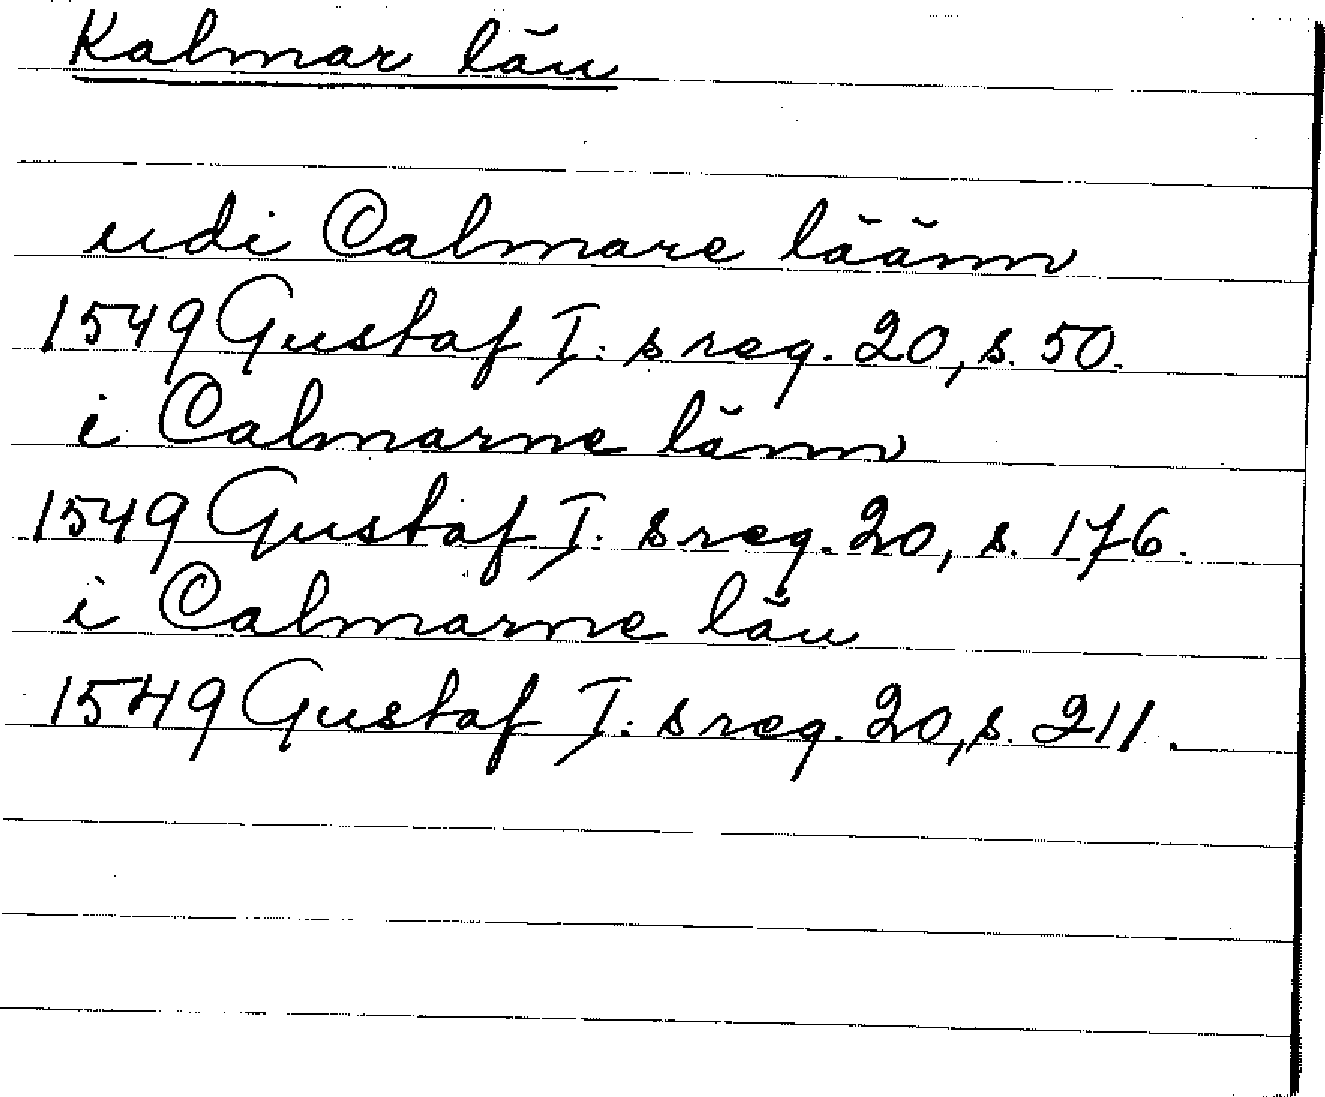 Kalmar län
udi Calmare läänn
1549 Gustaf I:s reg. 20, s. 50.
i Calmarne länn
1549 Gustaf I:s reg. 20, s. 176.
i Calmarne län
1549 Gustaf I:s reg. 20, s. 211.